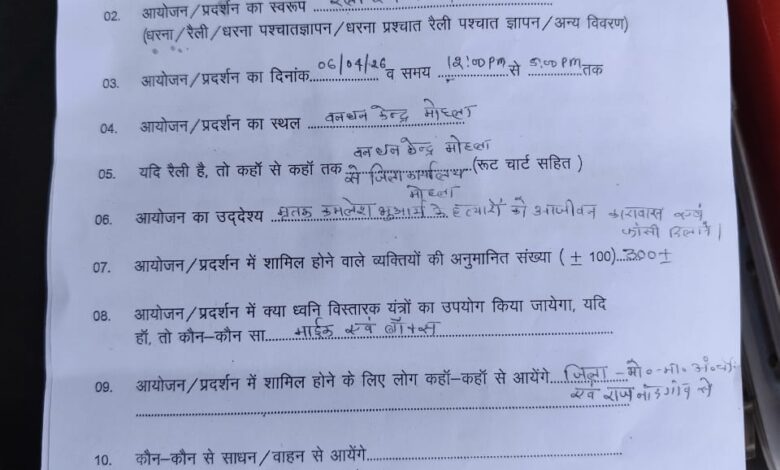 02. आयोजन/प्रदर्शन का स्वरूप
(धरना/रैली/धरना पश्चातज्ञापन/धरना प्रश्चात रैली पश्चात ज्ञापन/अन्य विवरण)
03. आयोजन/प्रदर्शन का दिनांक 06/04/26 व समय 12:00 PM से 5:00 PM तक
04. आयोजन/प्रदर्शन का स्थल वनधन केन्द्र मोहला
वनधन केन्द्र मोहला
05. यदि रैली है, तो कहॉ से कहॉ तक से जिला कार्यालय (रूट चार्ट सहित )
मोहला
06. आयोजन का उद्‌देश्य मृतक कमलेश भुआर्य के हत्यारों को आजीवन कारावास एवं
फांसी दिलाने।
07. आयोजन/प्रदर्शन में शामिल होने वाले व्यक्तियों की अनुमानित संख्या ( ± 100) 300±
08. आयोजन/प्रदर्शन में क्या ध्वनि विस्तारक यंत्रों का उपयोग किया जायेगा, यदि
हॉ, तो कौन-कौन सा माईक एवं बॉक्स
09. आयोजन/प्रदर्शन में शामिल होने के लिए लोग कहॉ-कहॉ से आयेंगे जिला - मो०-मा० अं०चौ०
एवं राजनांदगांव से
10. कौन-कौन से साधन/वाहन से आयेंगे